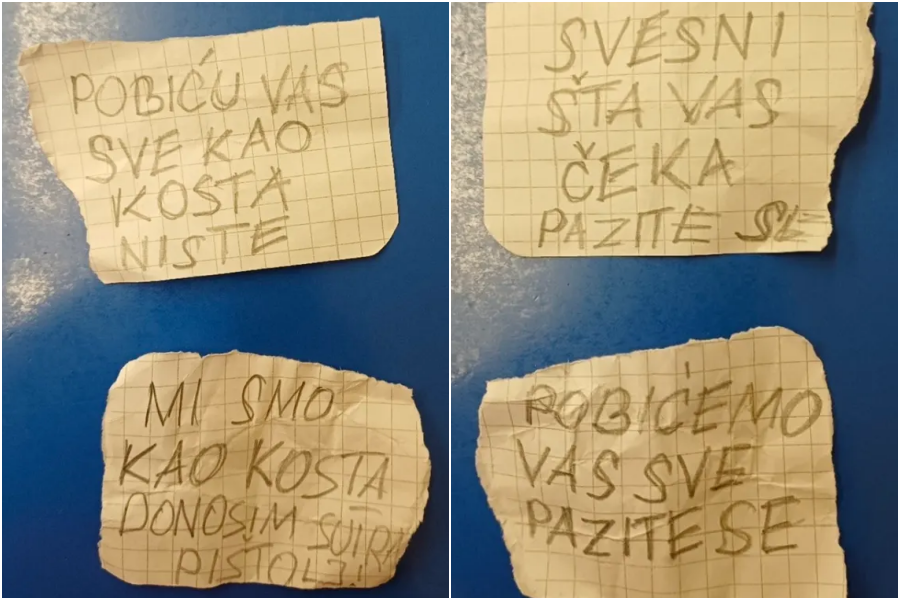 POBIĆU VAS
SVE KAO
KOSTA
NISTE
SVESNI
ŠTA VAS
ČEKA
PAZITE SE
MI SMO
KAO KOSTA
DONOSIM SUTRA
PIŠTOLJ!
POBIĆEMO
VAS SVE
PAZITE SE